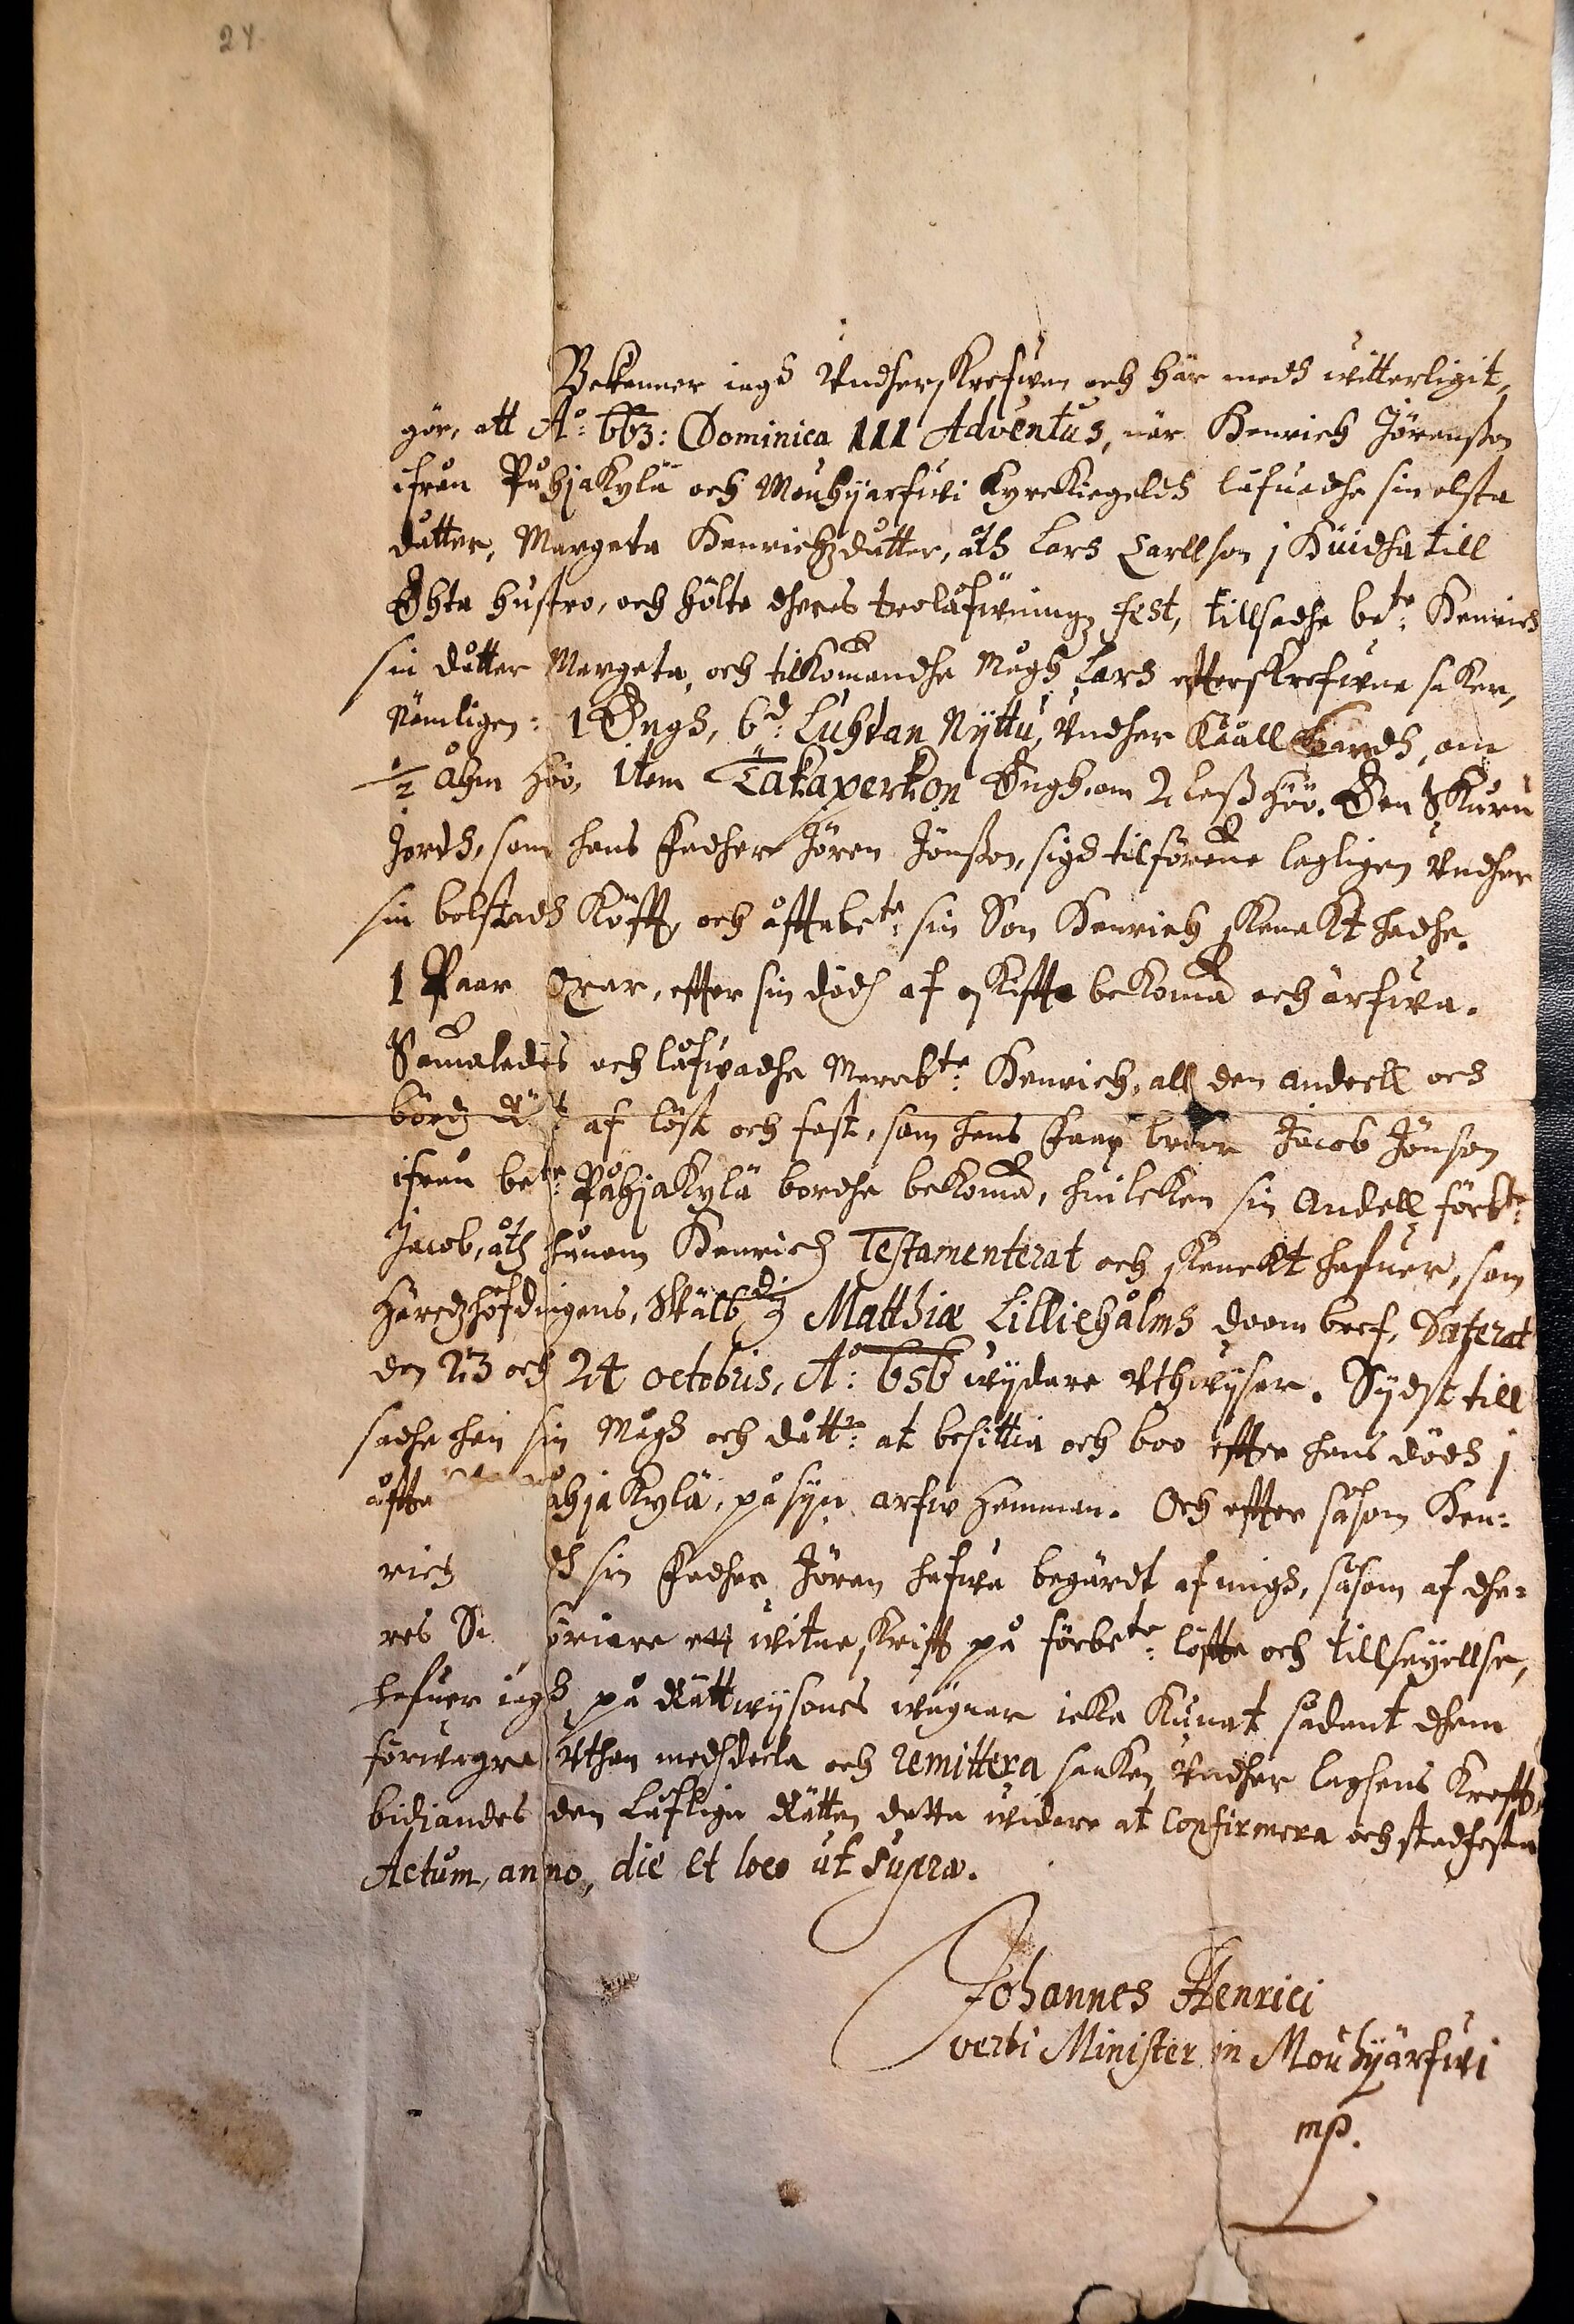 24.
Bekänner iagh Vndherskrefwen och här medh witterligit,
gör, att A:o 663: Dominica III Adventus, när Henrich Jöransson
ifrån Påhjakylä och Mouhijärfwi kyrckiegeldh låfuadhe sin elsta
dåtter, Margeta Henrichzdåtter, åth Lars Carllson j Huidha till
Ächta hustro, och hölte dheres trolåfwningz fest, tillsadhe be:te Henrich
sin dåtter Margeta, och tilkomandhe Mågh Lars effterskrefwne saker,
Nämligen: 1 Ängh, b:d Luhdan Nijttu, Vndher Kåall gårdh, om
½ ahm höö, item Takaperkon Ängh, om 2 lass höö. Den Skuru
Jordh, som hans Fadher Jören Jönsson, sigh tilförene lagligen Vndher
sin bolstadh Köfft, och åfftabe:te sin Son Henrich skenckt hadhe.
1 Paar Oxar, effter sin dödh af oskiffto bekoma och ärfwa.
Samaledes och låfwadhe Merrb:te Henrich, all den andeell och
bördz af löst och fast, som hans Faar broor Jacob Jönson
ifrån be:te Påhjakylä bordhe bekoma, huilcken sin Andell förb:te
Jacob, åth hånom Henrich Testamenterat och skenckt hafuer, som
Häredzhöfdingens, Wälb: Matthiæ Lilliehålms doom bref, Daterat
den 23 och 24 octobris, A:o 656 wijdare Vthwijser. Sijdst till
sadhe han sin Mågh och dått:r at besittia och boo effter hans dödh j
åffta åhjakylä, på sijn arfw Hemman. Och effter såsom Hen-
rich dh sin Fadher Jören hafwa begärdt af migh, såsom af dhe-
res S öriare ett witne skrifft på förbe:te löffte och tillsäyellse,
hafuer iagh på Rättwijsones wägnar icke Kunnat sådant dhem
förwägra Vthan medhdeela och remittera saaken Vndher laghsens krafft,
bidiandes den Låfligu Rätten detta widare at confirmera och stadfesta
Actum, anno, die et loco ut supra.
Johannes Henrici
verbi Minister in Mouhijärfwi
mp.